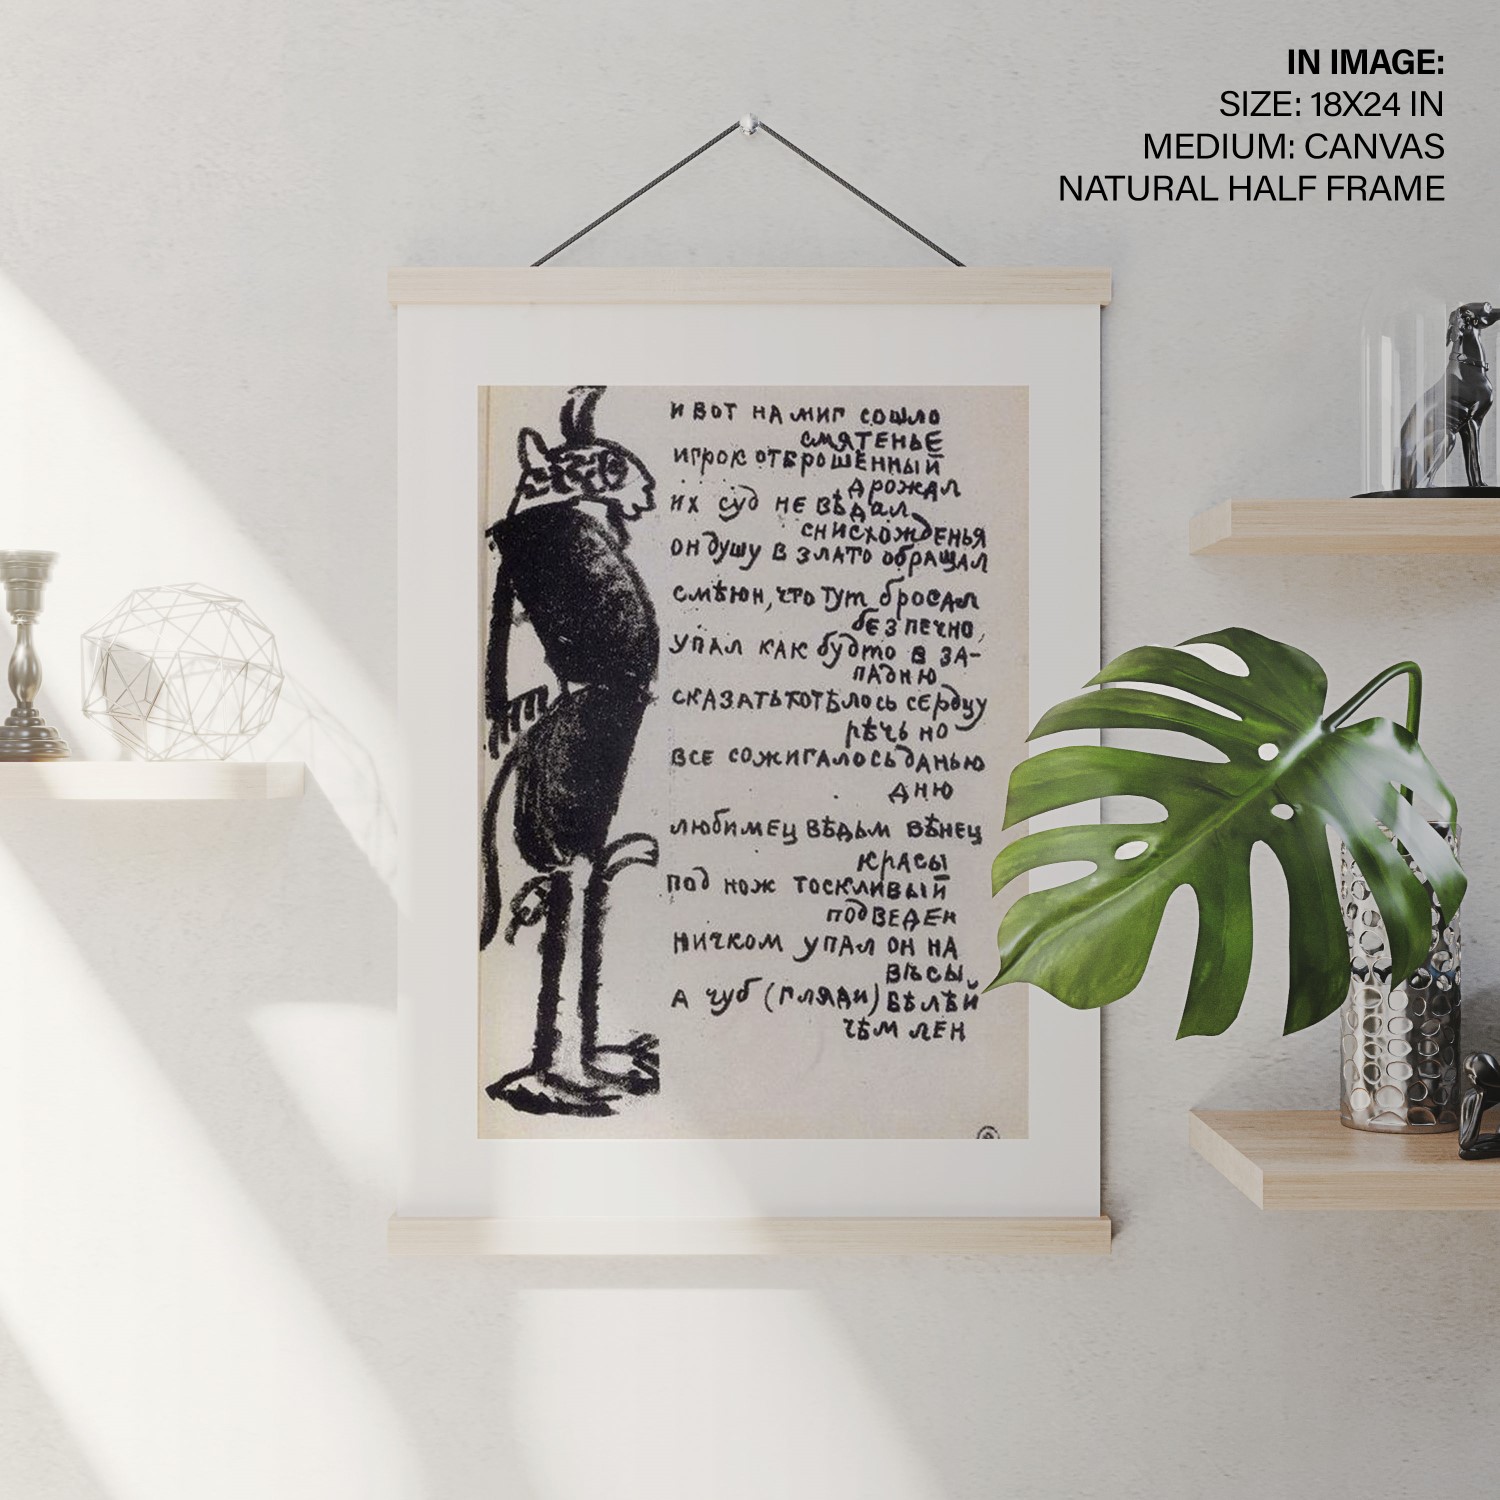 IN IMAGE:
SIZE: 18X24 IN
MEDIUM: CANVAS
NATURAL HALF FRAME
и вот на миг сошло
смятенье
игрок отброшенный
дрожал
их суд не вѣдал
снисхожденья
он душу в злато обращал
смѣюн, что тут бросал
безпечно,
упал как будто в за-
падню
сказать хотѣлось сердцу
рѣчь но
все сожигалось данью
дню
любимец вѣдьм вѣнец
красы
под нож тоскливый
подведен
ничком упал он на
вѣсы
а чуб (гляди) бѣлѣй
чѣм лен